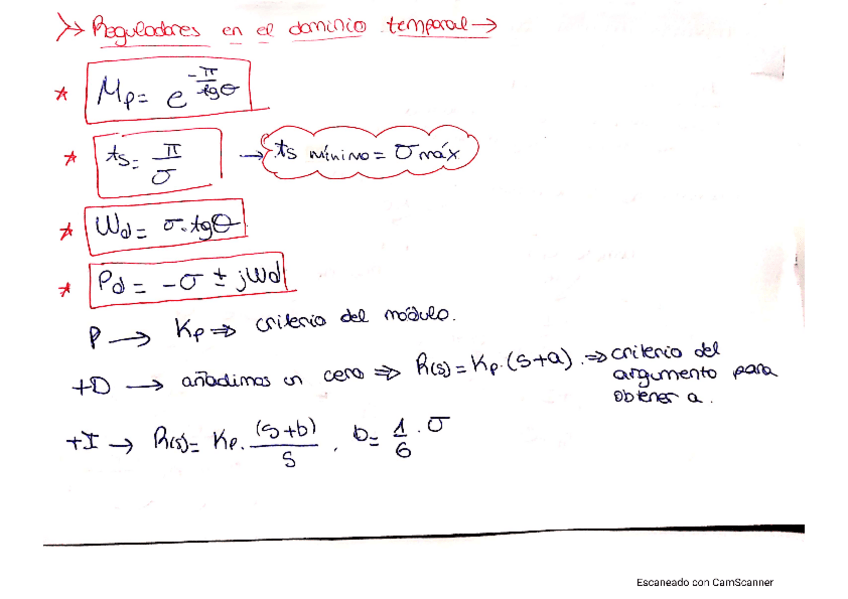 >> Reguladores en el dominio temporal →
* Mp = e^(-π/tgθ)
* ts = π/σ → ts mínimo = σ máx
* Wd = σ · tgθ
* Pd = -σ ± jWd
P → Kp ⇒ criterio del módulo.
+D → añadimos un cero ⇒ R(s) = Kp · (s+a) . ⇒ criterio del
argumento para
obtener a.
+I → R(s) = Kp · (s+b)/s , b = 1/6 · σ
Escaneado con CamScanner